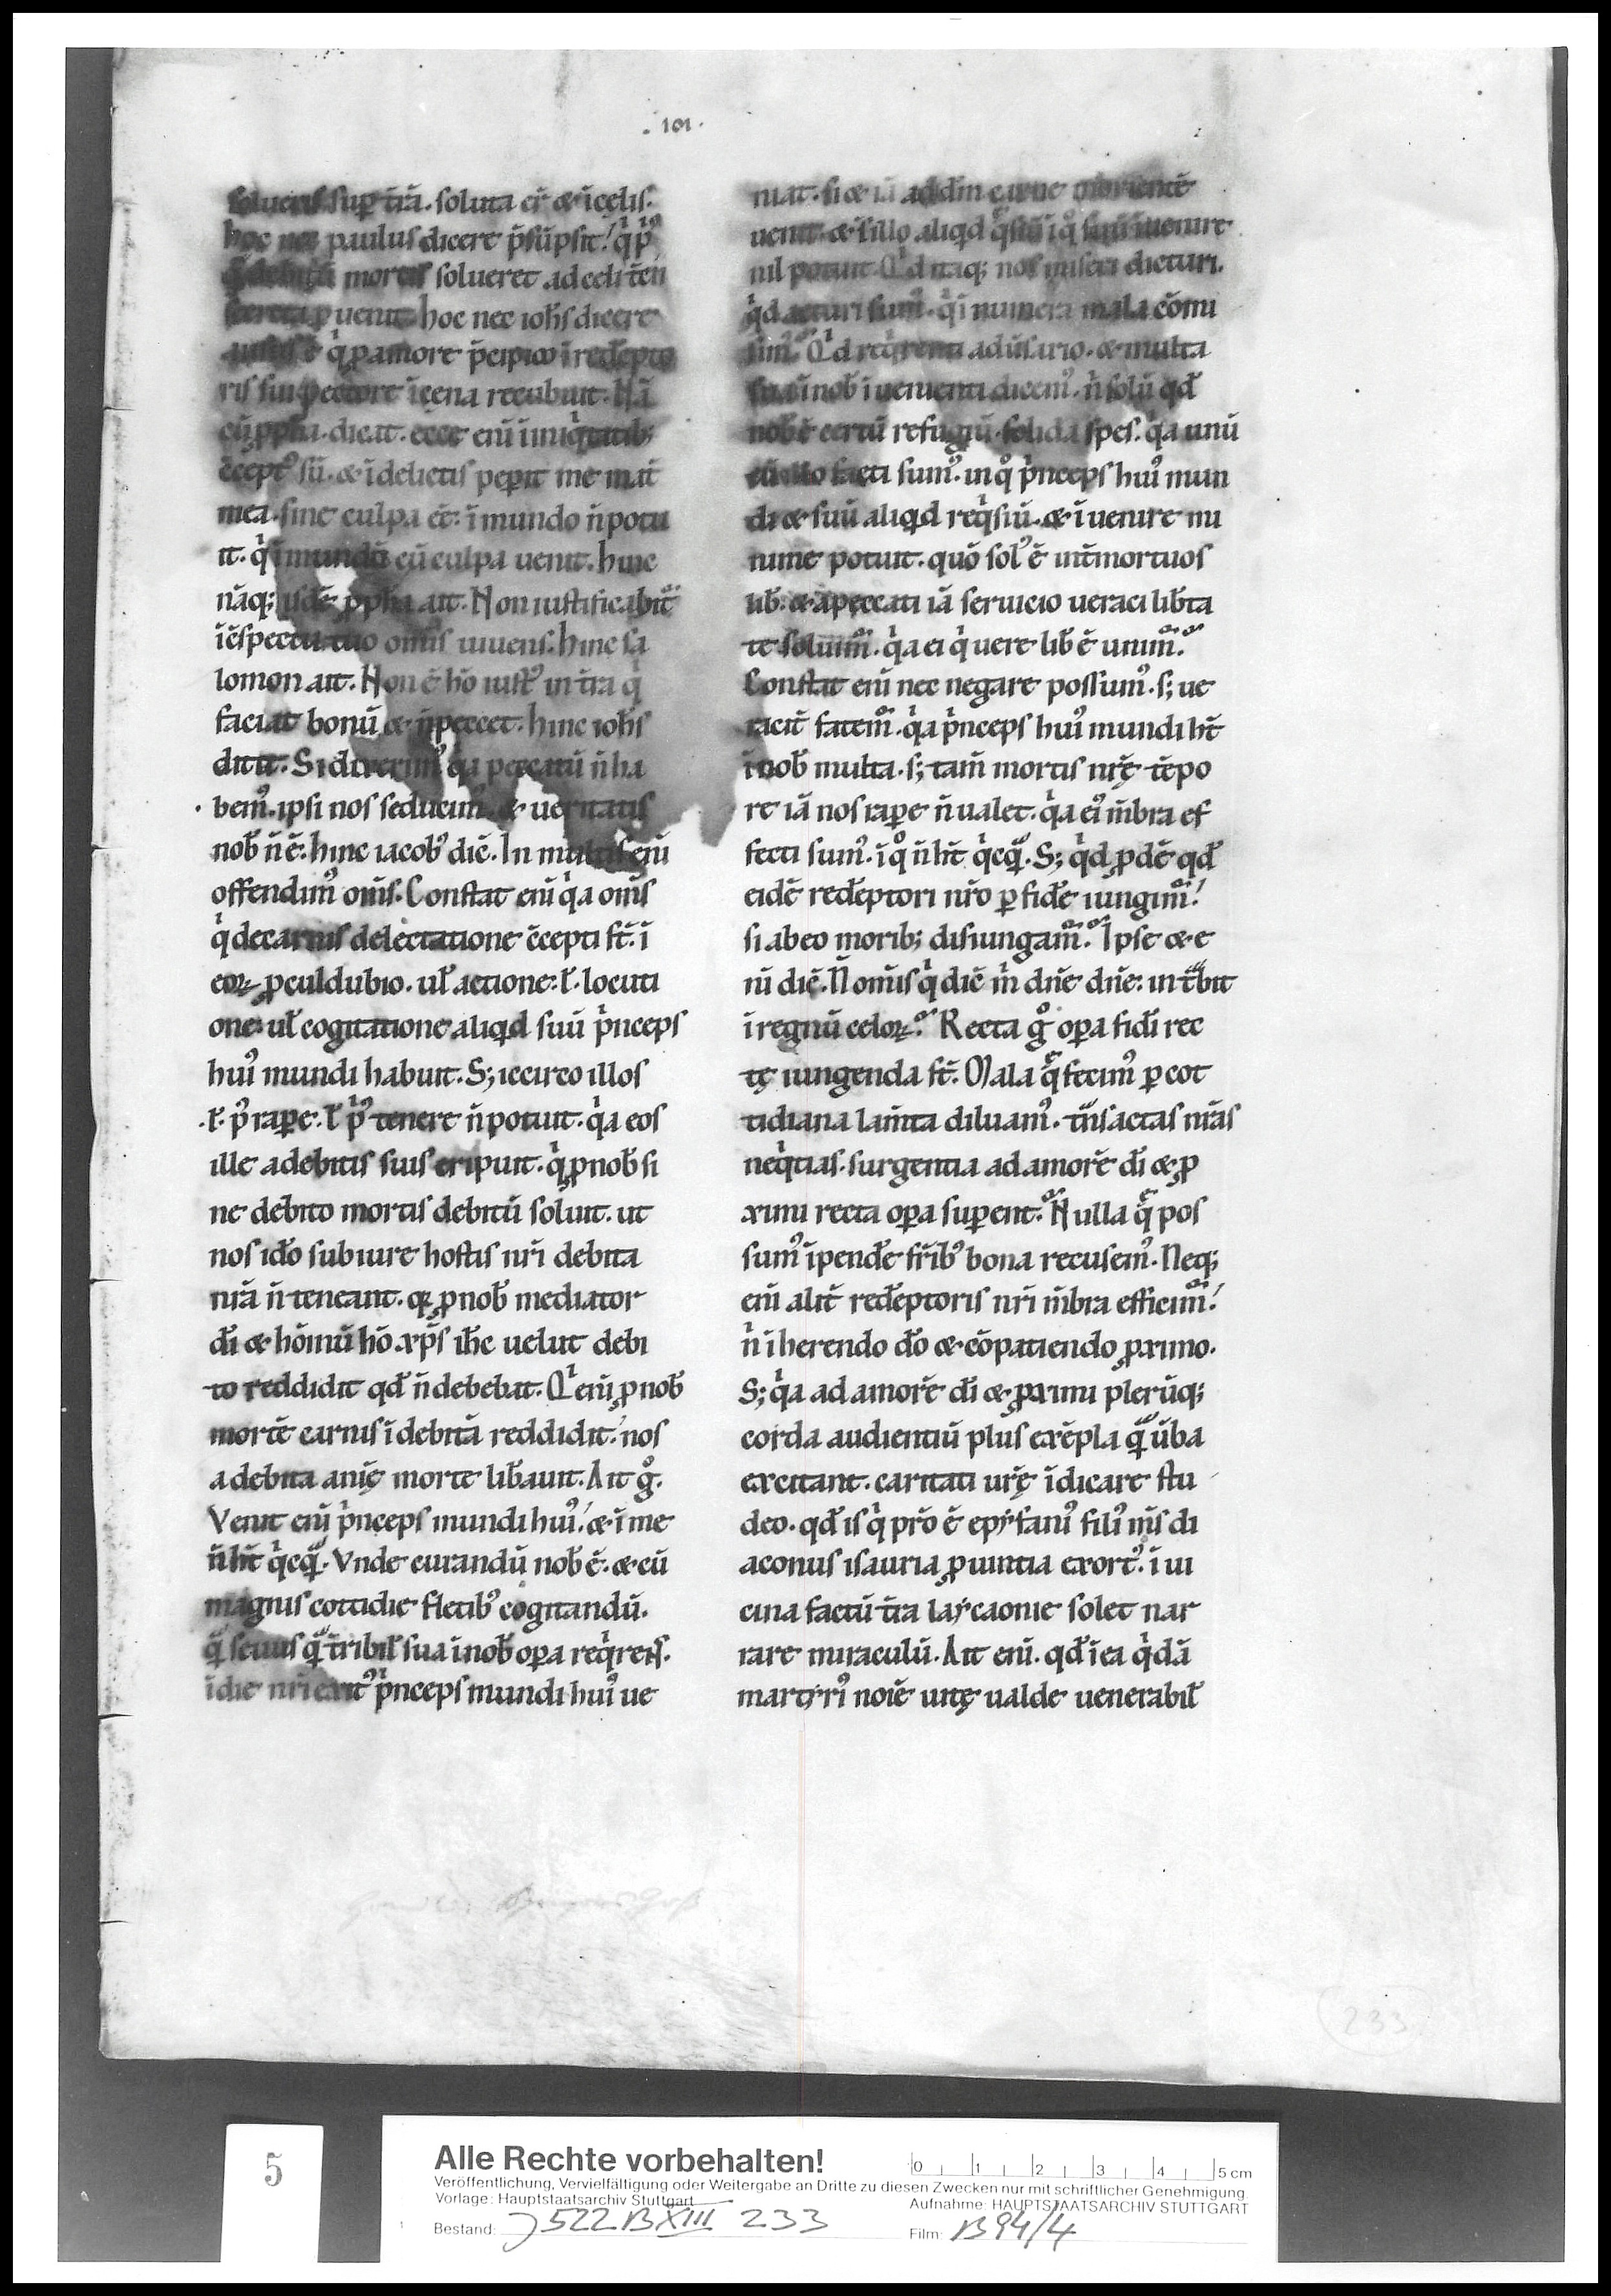 . 101 .
solueris sup t̄rā. soluta er̄ & ī cęlis.
hoc nec paulus dicere p̄sūpsit! qͥ pͥꝰ
mortis solueret. ad celi
ꝑuenit. hoc nec ioh̄s dicere
ausus ē qͥ ꝓ amore p̄cipuo ī redēpto
ris sui pectore ī cena recubuit. Nā
cū ꝓph̄a dicat. ecce enī ī iniqͥtatib;
c̄ceptꝰ sū. & ī delictis peꝑit me mat̄
mea. sine culpa ee̅. ī mundo n̄ potu
it. qͥ ī mundū cū culpa uenit. hinc
nāq; isdē ꝓph̄a ait. Non iustificabit᷑
ī c̄spectu tuo om̄is uiuens. hinc sa
lomon ait. Non ē hō iustꝰ in t̄ra qͥ
faciat bonū & n̄ peccet. hinc ioh̄s
dicit. Si dixerimꝰ qͥa peccatū n̄ ha
bemꝰ. ipsi nos seducimꝰ & ueritatis
nob̄ n̄ ē. hinc iacobꝰ dic̄. In multis enī
offendimꝰ om̄s. Constat enī qͥa om̄s
qͥ de carnis delectatione c̄cepti st̄. ī
eoꝝ ꝓculdubio. ul̄ actione. ł. locuti
one. ul̄ cogitatione aliqͥd suū pͥnceps
huiꝰ mundi habuit. S; iccirco illos
.ł. pꝰ raꝑe. ł pͥꝰ tenere n̄ potuit. qͥa eos
ille a debitis suis eripuit. qͥ ꝓ nob̄ si
ne debito mortis debitū soluit. ut
nos iđo sub iure hostis nr̄i debita
nr̄ā n̄ teneant. qꝫ ꝓ nob̄ mediator
dī & hōinū hō xp̄s ih̄c uelut debi
to reddidit qđ n̄ debebat. Qͥ enī ꝓ nob̄
mortē carnis īdebitā reddidit! nos
a debita anīę morte lib̄auit. Ait gͦ.
Venit enī pͥnceps mundi huiꝰ! & ī me
n̄ ht̄ qͥcqͣ. Vnde curandū nob̄ ē. & cū
magnis cottidie fletibꝰ cogitandū.
qͣ seuus qͣ t̄ribil̄ sua ī nob̄ oꝑa reqͥrens.
ī die nr̄i exitꝰ pͥnceps mundi huiꝰ ue
niat. si & iā ad dīm carne morientē
uenit. & ī illo aliqͥd qͥsiuit ī qͦ suū īuenire
nil potuit. Qͥd itaq; nos miseri dicturi.
qͥd acturi sumꝰ. qͥ īnumera mala cōmi
simꝰ. Qͥd reqͥrenti adūsario. & multa
sua ī nob̄ īuenienti dicemꝰ. n̄ solū qđ
nob̄ ē certū refugiū solida spes. qͥa unū
cū illo facti sumꝰ. in qͦ pͥnceps huiꝰ mun
di & suū aliqͥd reqͥsiū. & īuenire mi
nime potuit. quō solꝰ ē int̄ mortuos
lib̄. & a peccati iā seruicio ueraci lib̄ta
te soluim᷑. qͥa ei qͥ uere lib̄ ē unim᷑.
Constat enī nec negare possumꝰ. s; ue
racit̄ fatem᷑. qͥa pͥnceps huiꝰ mundi ht̄
ī nob̄ multa. s; tam̄ mortis nr̄ę tēpo
re iā nos raꝑe n̄ ualet. qͥa eiꝰ m̄bra ef
fecti sumꝰ. ī qͦ n̄ ht̄ qͥcqͣ. S; qͥd ꝓdē qđ
eidē redēptori nr̄o ꝑ fidē iungim᷑!
si ab eo morib; disiungam᷑. Ipse & e
ni dic̄. Non om̄is qͥ dic̄ m̄ dn̄e dn̄e: int̄bit
ī regnū celoꝝ. Recta gͦ oꝑa fidi rec
tę iungenda st̄. Mala qͣ fecimꝰ ꝑ cot
tidiana lam̄ta diluamꝰ. tn̄sactas nr̄as
neqͥtias. surgentia ad amorē dī & ꝓ
ximi recta oꝑa suꝑent. Nulla qͣ pos
sumꝰ īpendē fr̄ibꝰ bona recusemꝰ. Neq;
enī alit̄ redēptoris nr̄i m̄bra efficim᷑!
n̄ īherendo dō & cōpatiendo ꝓximo.
S; qͥa ad amorē dī & ꝓximi plerūq;
corda audientiū plus exēpla qͣ ūba
excitant. caritati ur̄ę īdicare stu
deo. qđ is qͥ p̄rō ē epẏfaniꝰ filiꝰ m̄s di
aconus isauria ꝓuintia exortꝰ. ī ui
cina factū t̄ra laẏcaonie solet nar
rare miraculū. Ait enī. qđ ī ea qͥdā
martẏriꝰ noīē uitę ualde uenerabil̄
233
5
Alle Rechte vorbehalten!
Veröffentlichung, Vervielfältigung oder Weitergabe an Dritte zu diesen Zwecken nur mit schriftlicher Genehmigung.
Vorlage: Hauptstaatsarchiv Stuttgart
Aufnahme: HAUPTSTAATSARCHIV STUTTGART
Bestand: J 522 B XIII 233
Film: B 94/4
0 1 2 3 4 5 cm